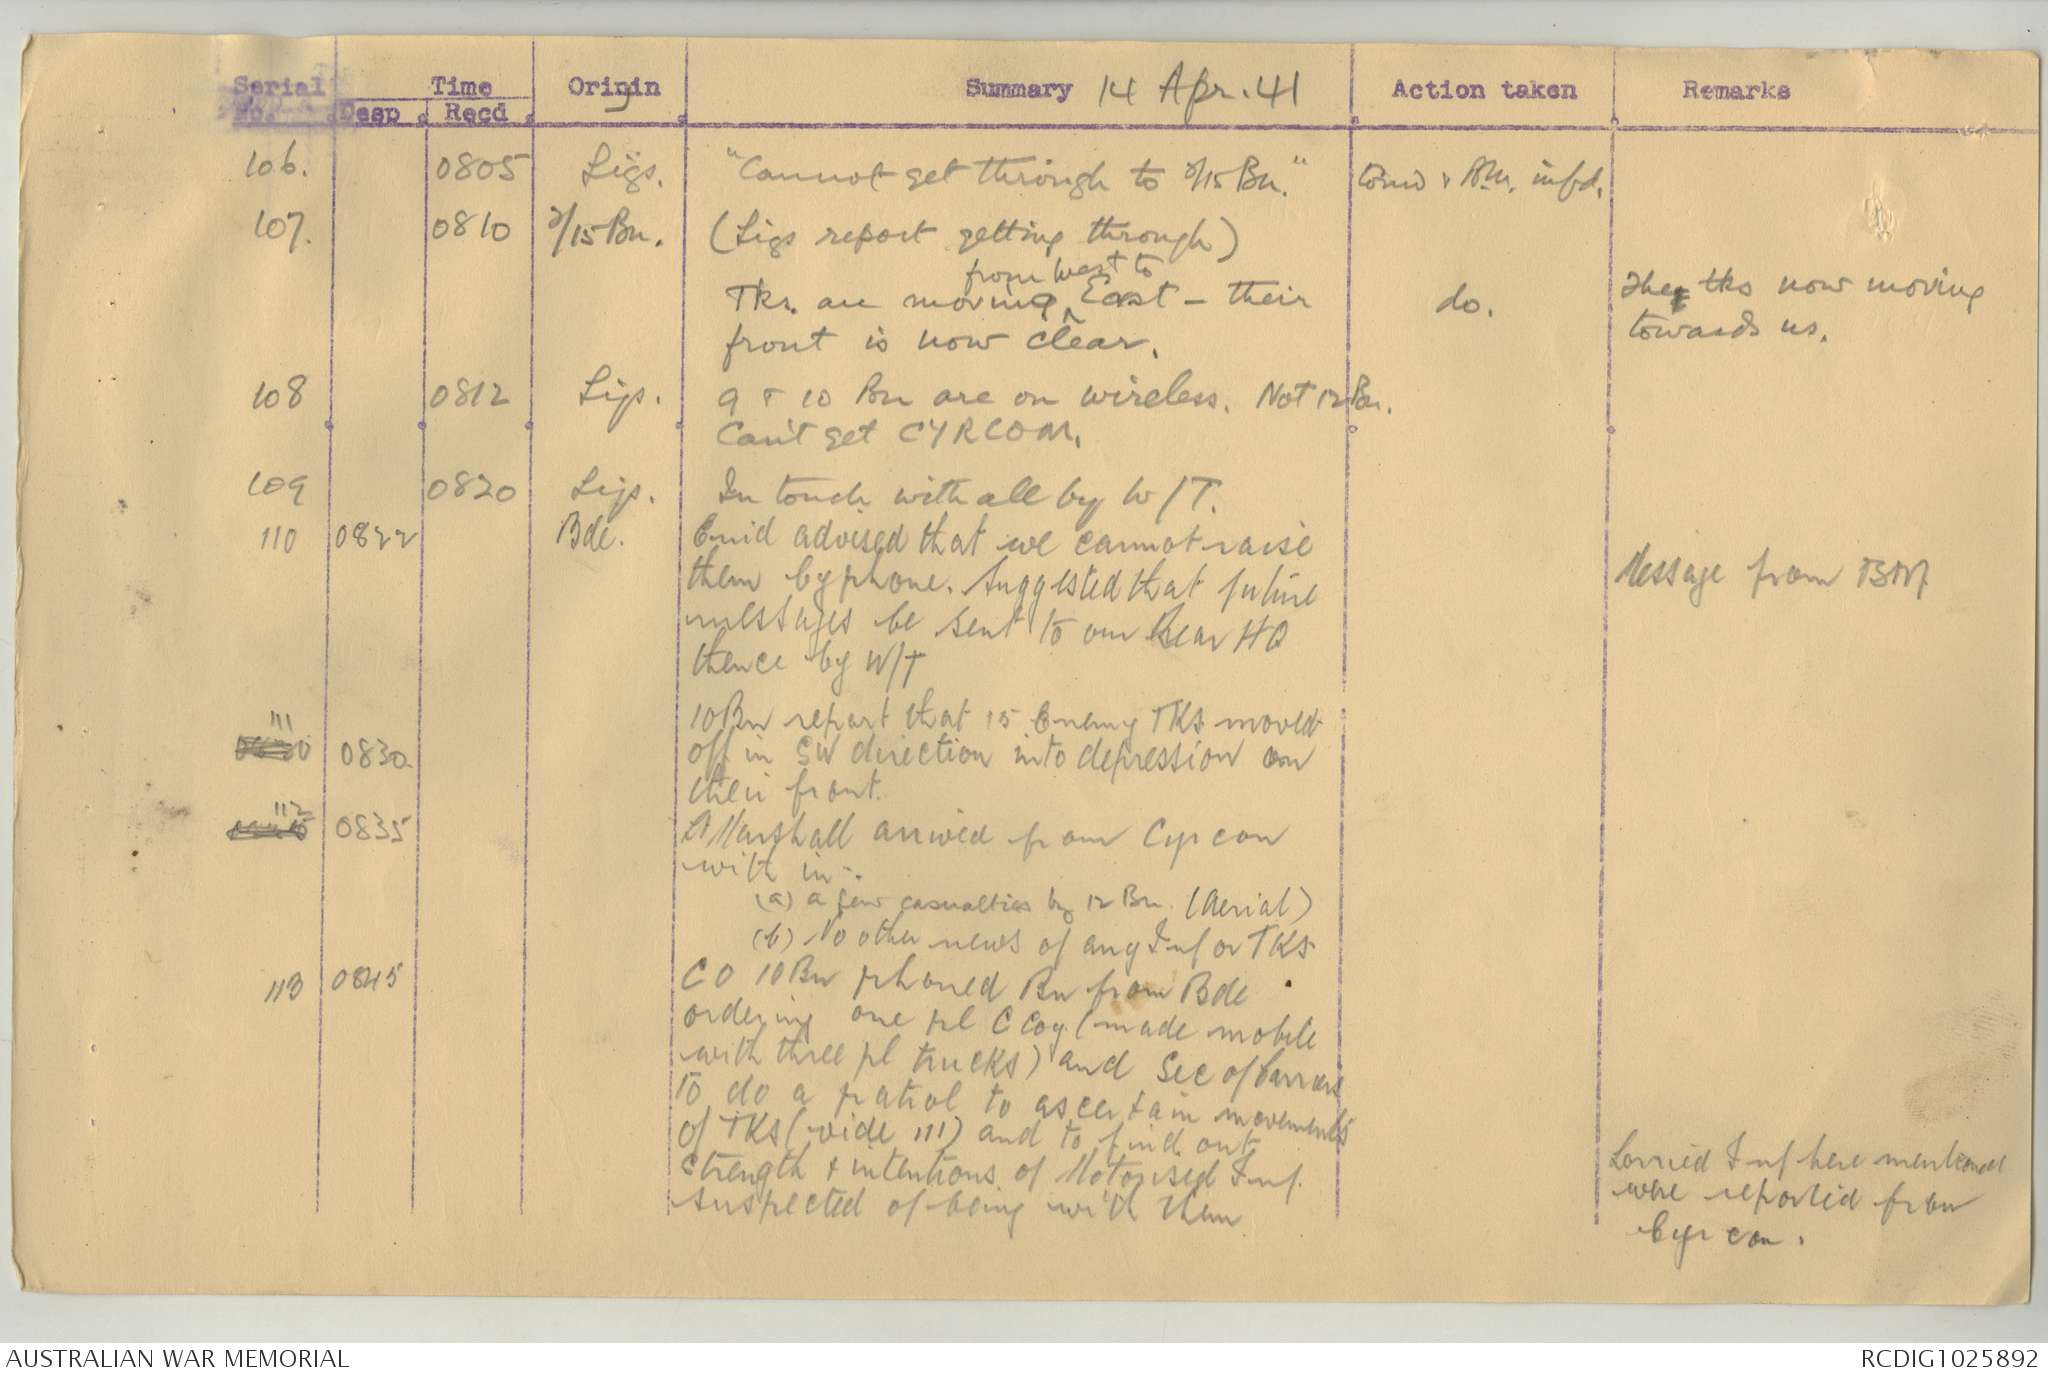 Serial No. Time Origin Summary 14 Apr. 41 Action taken Remarks
Desp Recd
106. 0805 Sigs. "Cannot get through to 2/15 Bn." Comd & BM. infd.
107. 0810 2/15 Bn. (Sigs report getting through)
from West to
Tks. are moving ^ East - their do. The tks now moving
front is now clear. towards us.
108 0812 Sigs. 9 & 10 Bn are on wireless. Not 12 Bn.
Can't get CYRCOM.
109 0820 Sigs. In touch with all by W/T.
110 0822 Bde. Enid advised that we cannot raise
them by phone. Suggested that future Message from BM
messages be sent to our Rear HQ
thence by W/T
111 0830 10 Bn report that 15 Enemy TKS moved
off in SW direction into depression on
their front.
112 0835 Lt Marshall arrived from Cyrcom
with in:-
(a) a few casualties by 12 Bn. (Aerial)
(b) No other news of any Inf or TKS
113 0845 CO 10 Bn phoned Bn from Bde
ordering one pl C Coy (made mobile
with three pl trucks) and Sec of Carriers
to do a patrol to ascertain movements
of TKS (vide 111) and to find out
strength & intentions of Motorised Inf. Lorried Inf here mentioned
suspected of being with them were reported from
Cyrcom.
AUSTRALIAN WAR MEMORIAL RCDIG1025892